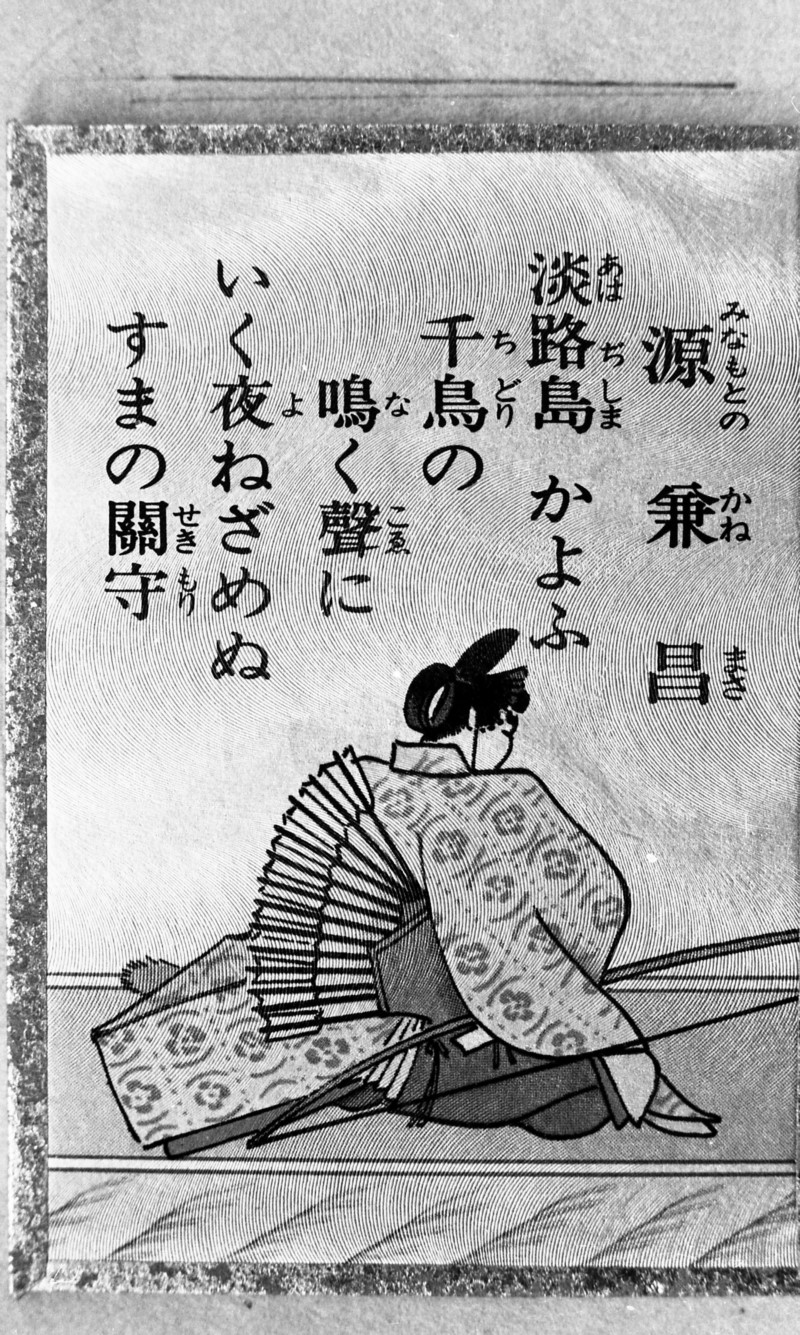 源兼昌
みなもとのかねまさ
淡路島 かよふ
あはぢしま
千鳥の
ちどり
鳴く聲に
なこゑ
いく夜ねざめぬ
よ
すまの關守
せきもり